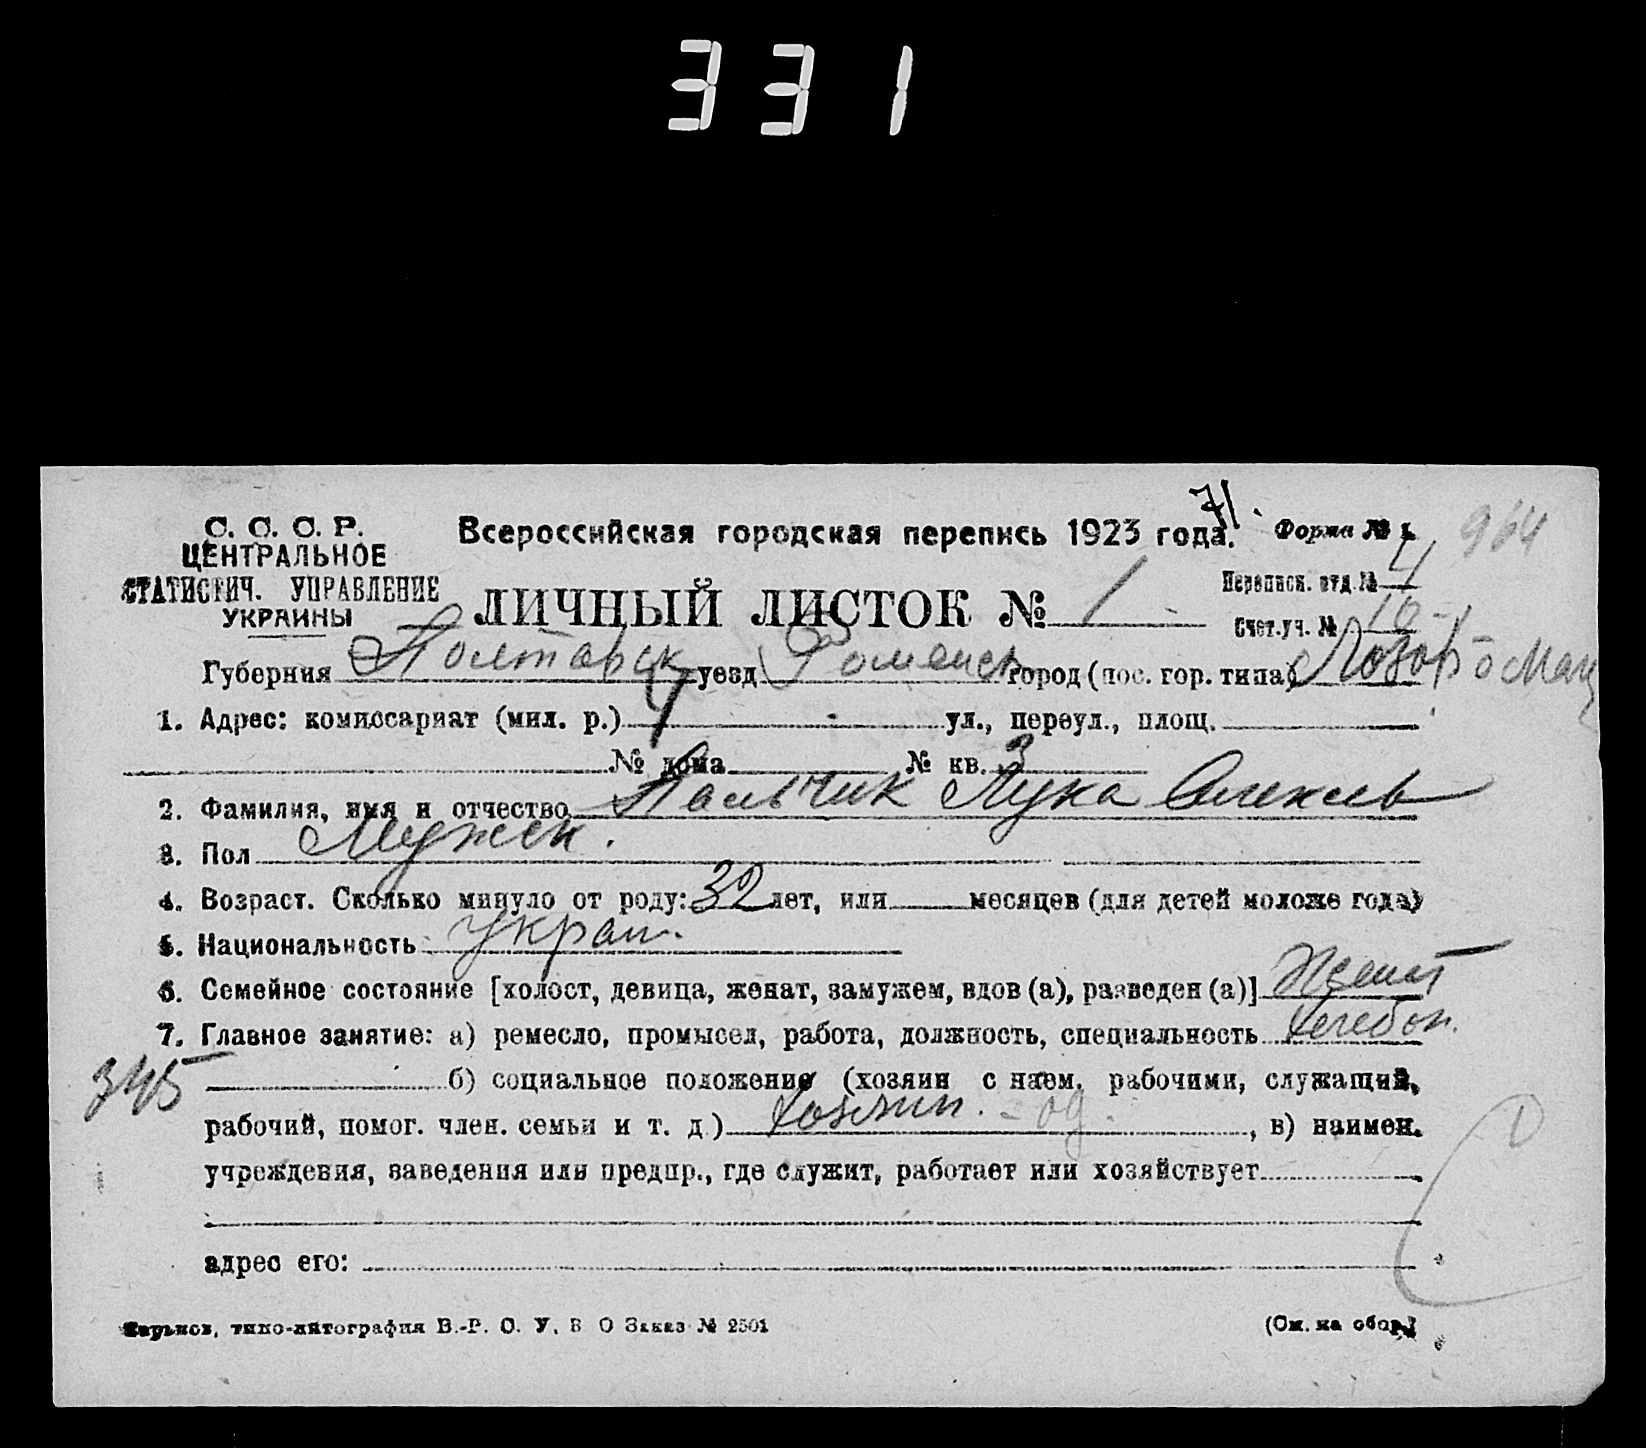 331
С. С. С. Р.
ЦЕНТРАЛЬНОЕ
СТАТИСТИЧ. УПРАВЛЕНИЕ
УКРАИНЫ
Всероссийская городская перепись 1923 года.
71.
Форма № 1.
964
ЛИЧНЫЙ ЛИСТОК № 1
Переписн. отд. № 4
Счет. уч. № 10
Губерния Полтавск уезд Роменск город (пос. гор. типа)
1. Адрес: комиссариат (мил. р.) ул., переул., площ.
№ дома № кв. 3
2. Фамилия, имя и отчество Пальчик Лука Алексеев
3. Пол Мужск.
4. Возраст. Сколько минуло от роду: 32 лет, или месяцев (для детей моложе года)
5. Национальность украин.
6. Семейное состояние [холост, девица, женат, замужем, вдов (а), разведен (а)] Женат
7. Главное занятие: а) ремесло, промысел, работа, должность, специальность хлебоп.
345 б) социальное положение (хозяин с наем. рабочими, служащий,
рабочий, помог. член. семьи и т. д.) хозяин. - од. , в) наимен.
учреждения, заведения или предпр., где служит, работает или хозяйствует
адрес его:
Харьков, типо-литография В.-Р. О. У. В О Заказ № 2501
(См. на обор.)